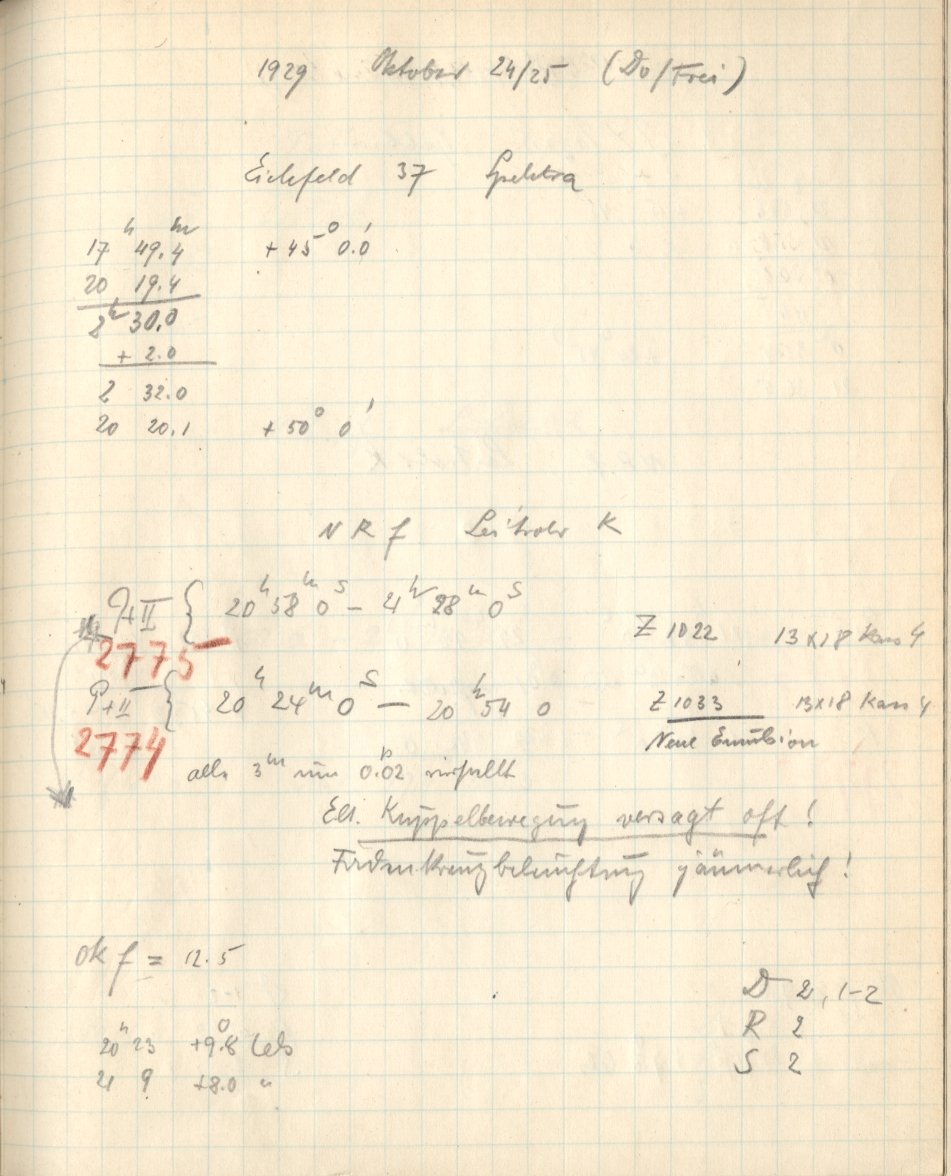 1929 Oktober 24/25 (Do/Frei)
Eichfeld 37 Spektra
17ʰ 49.4ᵐ +45° 0.0'
20 19.4
2ʰ 30.0
+ 2.0
2 32.0
20 20.1 +50° 0'
N R f Leitrohr K
P+II { 20ʰ 58ᵐ 0ˢ – 21ʰ 28ᵐ 0ˢ Z 1022 13x18 Kass 4
2775
P+II { 20ʰ 24ᵐ 0ˢ – 20ʰ 54 0 Z 1033 13x18 Kass 4
2774 Neue Emulsion
alle 3ᵐ um 0.02 verstellt
Ell. Kuppelbewegung versagt oft!
Fadenkreuzbeleuchtung jämmerlich!
Ok f = 12.5
D 2, 1–2
20ʰ 23 +9.8° Cels R 2
21 9 +8.0 " S 2